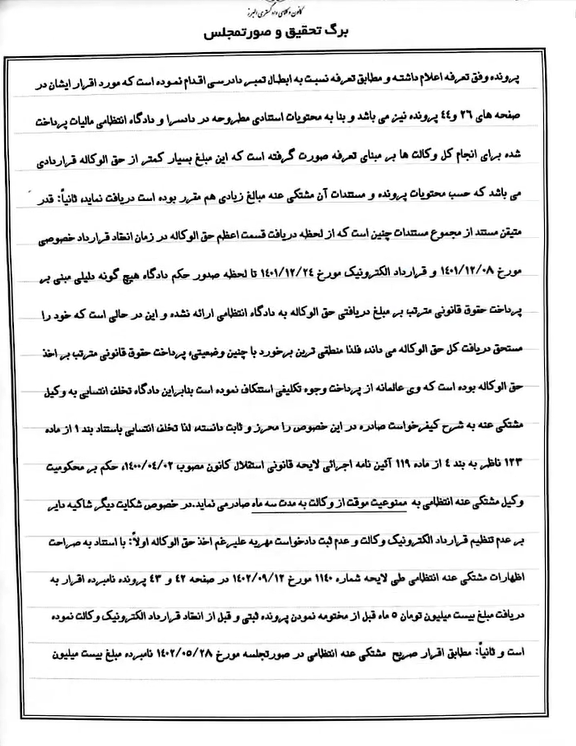 کانون وکلای دادگستری البرز
برگ تحقیق و صورتمجلس
پرونده وفق تعرفه اعلام داشته و مطابق تعرفه نسبت به ابطال تمبر دادرسی اقدام نموده است که مورد اقرار ایشان در
صفحه های ۲۶ و ۴۴ پرونده نیز می باشد و بنا به محتویات استنادی مطروحه در دادسرا و دادگاه انتظامی مالیات پرداخت
شده برای انجام کل وکالت ها بر مبنای تعرفه صورت گرفته است که این مبلغ بسیار کمتر از حق الوکاله قراردادی
می باشد که حسب محتویات پرونده و مستندات آن مشتکی عنه مبالغ زیادی هم مقرر بوده است دریافت نماید، ثانیاً: قدر
متیقن مستند از مجموع مستندات چنین است که از لحظه دریافت قسمت اعظم حق الوکاله در زمان انعقاد قرارداد خصوصی
مورخ ۱۴۰۱/۱۲/۰۸ و قرارداد الکترونیک مورخ ۱۴۰۱/۱۲/۲۴ تا لحظه صدور حکم دادگاه هیچ گونه دلیلی مبنی بر
پرداخت حقوق قانونی مترتب بر مبلغ دریافتی حق الوکاله به دادگاه انتظامی ارائه نشده و این در حالی است که خود را
مستحق دریافت کل حق الوکاله می داند، فلذا منطقی ترین برخورد با چنین وضعیتی، پرداخت حقوق قانونی مترتب بر اخذ
حق الوکاله بوده است که وی عالمانه از پرداخت وجوه تکلیفی استنکاف نموده است بنابراین دادگاه تخلف انتسابی به وکیل
مشتکی عنه به شرح کیفرخواست صادره در این خصوص را محرز و ثابت دانسته، لذا تخلف انتسابی باستناد بند ۱ از ماده
۱۲۳ ناظر به بند ٤ از ماده ۱۱۹ آئین نامه اجرائی لایحه قانونی استقلال کانون مصوب ۱۴۰۰/۰۴/۰۲، حکم بر محکومیت
وکیل مشتکی عنه انتظامی به ممنوعیت موقت از وکالت به مدت سه ماه صادر می نماید. در خصوص شکایت دیگر شاکیه دایر
بر عدم تنظیم قرارداد الکترونیک وکالت و عدم ثبت دادخواست مهریه علیرغم اخذ حق الوکاله اولاً: با استناد به صراحت
اظهارات مشتکی عنه انتظامی طی لایحه شماره ۱۱۴۰ مورخ ۱۴۰۲/۰۹/۱۲ در صفحه ۴۲ و ۴۳ پرونده نامبرده اقرار به
دریافت مبلغ بیست میلیون تومان ۵ ماه قبل از مختومه نمودن پرونده ثبتی و قبل از انعقاد قرارداد الکترونیک وکالت نموده
است و ثانیاً: مطابق اقرار صریح مشتکی عنه انتظامی در صورتجلسه مورخ ۱۴۰۲/۰۵/۲۸ نامبرده مبلغ بیست میلیون